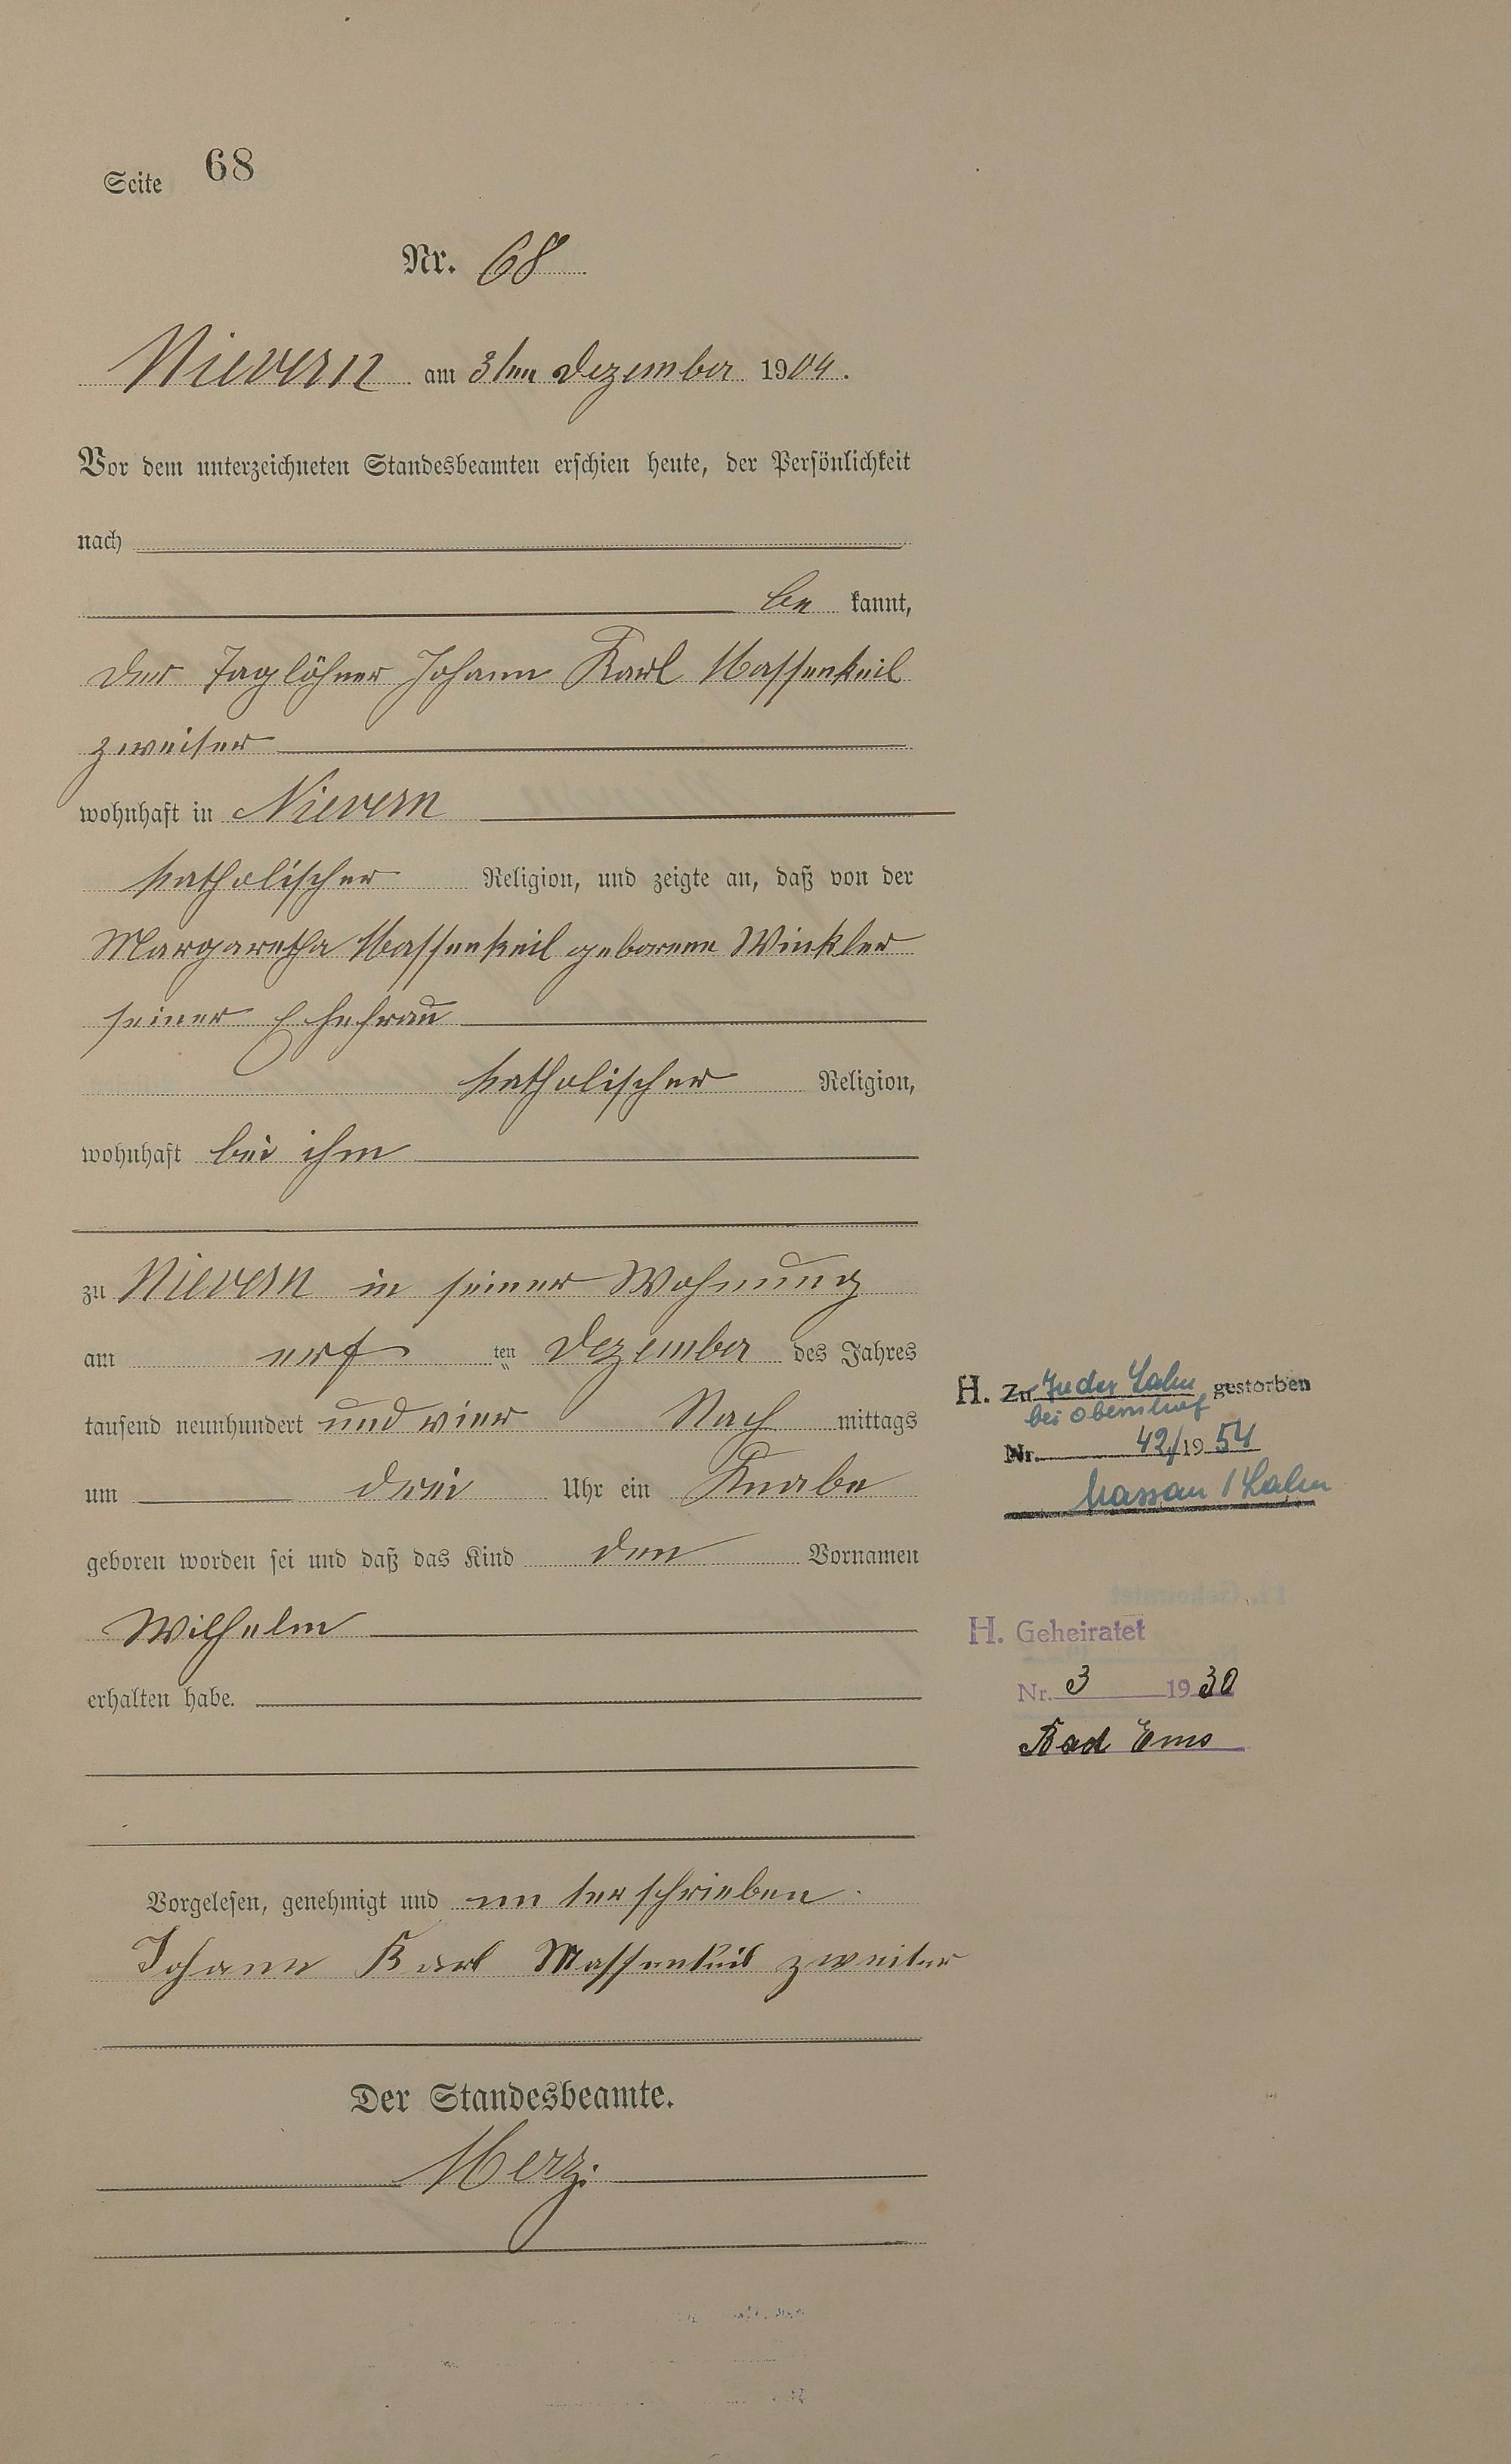 Seite 68
Nr. 68
Nievern am 3ten Dezember 1904.
Vor dem unterzeichneten Standesbeamten erschien heute, der Persönlichkeit
nach
be kannt,
der Taglöhner Johann Karl Massenkeil
zweiter
wohnhaft in Nievern
katholischer Religion, und zeigte an, daß von der
Margaretha Massenkeil geborene Winkler
seiner Ehefrau
katholischer Religion,
wohnhaft bei ihm
zu Nievern in seiner Wohnung
am ten Dezember des Jahres
tausend neunhundert und vier Nach mittags
um drei Uhr ein Knabe
geboren worden sei und daß das Kind den Vornamen
Wilhelm
erhalten habe.
Vorgelesen, genehmigt und unterschrieben.
Johann Karl Massenkeil zweiter
Der Standesbeamte.
Merz.
H. Zu In der Lahn gestorben
bei Obernhof
Nr. 42/1954
Nassau / Lahn
H. Geheiratet
Nr. 3 1930
Bad Ems